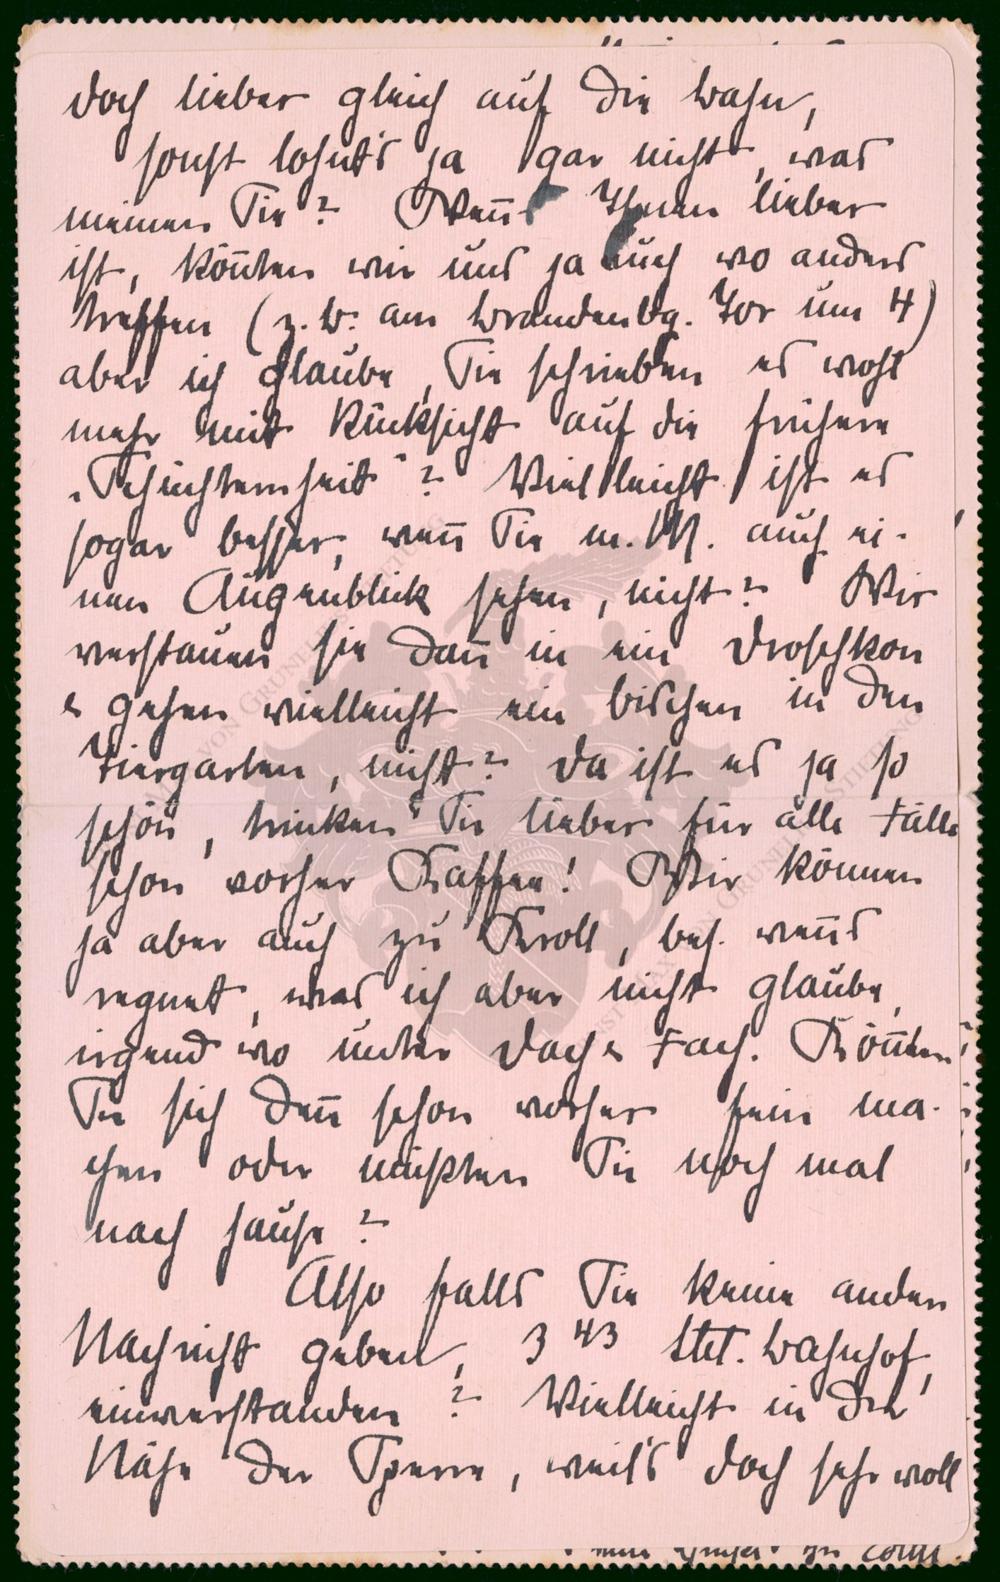 doch lieber gleich auf die Bahn,
sonst lohnt's ja gar nicht, was
meinen Sie? Wenn's Ihnen lieber
ist, könnten wir uns ja auch wo anders
treffen (z. B. am Brandenbg. Tor um 4)
aber ich glaube, Sie schrieben es wohl
mehr mit Rücksicht auf die frühere
„Schüchternheit"? Vielleicht ist es
sogar besser, wenn Sie m. M. auch ei-
nen Augenblick sehen, nicht? Wir
verstauen sie dann in ein Droschkon
& gehen vielleicht ein bischen in den
Tiergarten, nicht? Da ist es ja so
schön, trinken Sie lieber für alle Fälle
schon vorher Kaffee! Wir können
ja aber auch zu Kroll, bes. wenn's
regnet, was ich aber nicht glaube,
irgend wo unter Dach & Fach. Könnten
Sie sich denn schon vorher fein ma-
chen oder müßten Sie noch mal
nach hause?
Also falls Sie keine andern
Nachricht geben, 3 43 Stet. Bahnhof,
einverstanden? Vielleicht in der
Nähe der Sperre, weil's doch sehr voll